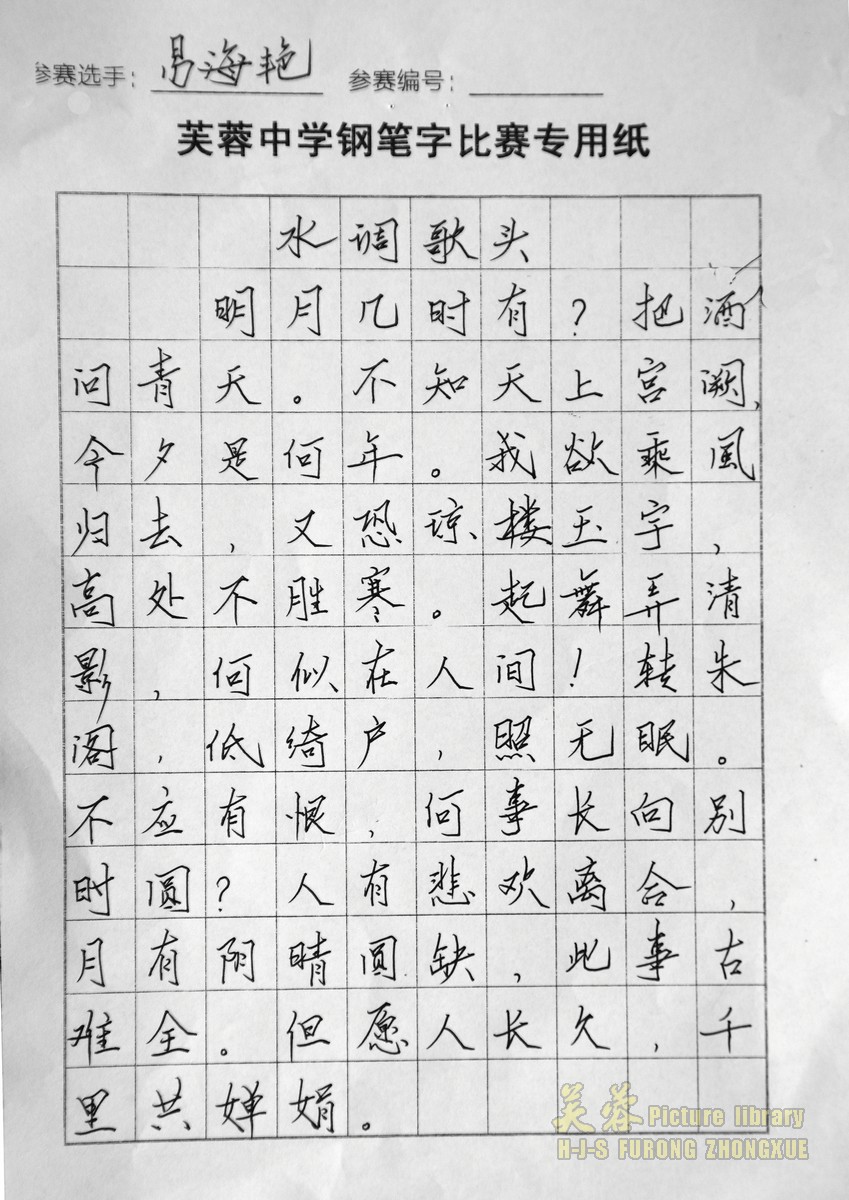 参赛选手：易海艳 参赛编号：
芙蓉中学钢笔字比赛专用纸
水调歌头
明月几时有？把酒
问青天。不知天上宫阙，
今夕是何年。我欲乘風
归去，又恐琼楼玉宇，
高处不胜寒。起舞弄清
影，何似在人间！转朱
阁，低绮户，照无眠。
不应有恨，何事长向别
时圆？人有悲欢离合，
月有阴晴圆缺，此事古
难全。但愿人长久，千
里共婵娟。
芙蓉 Picture library
H-J-S FURONG ZHONGXUE